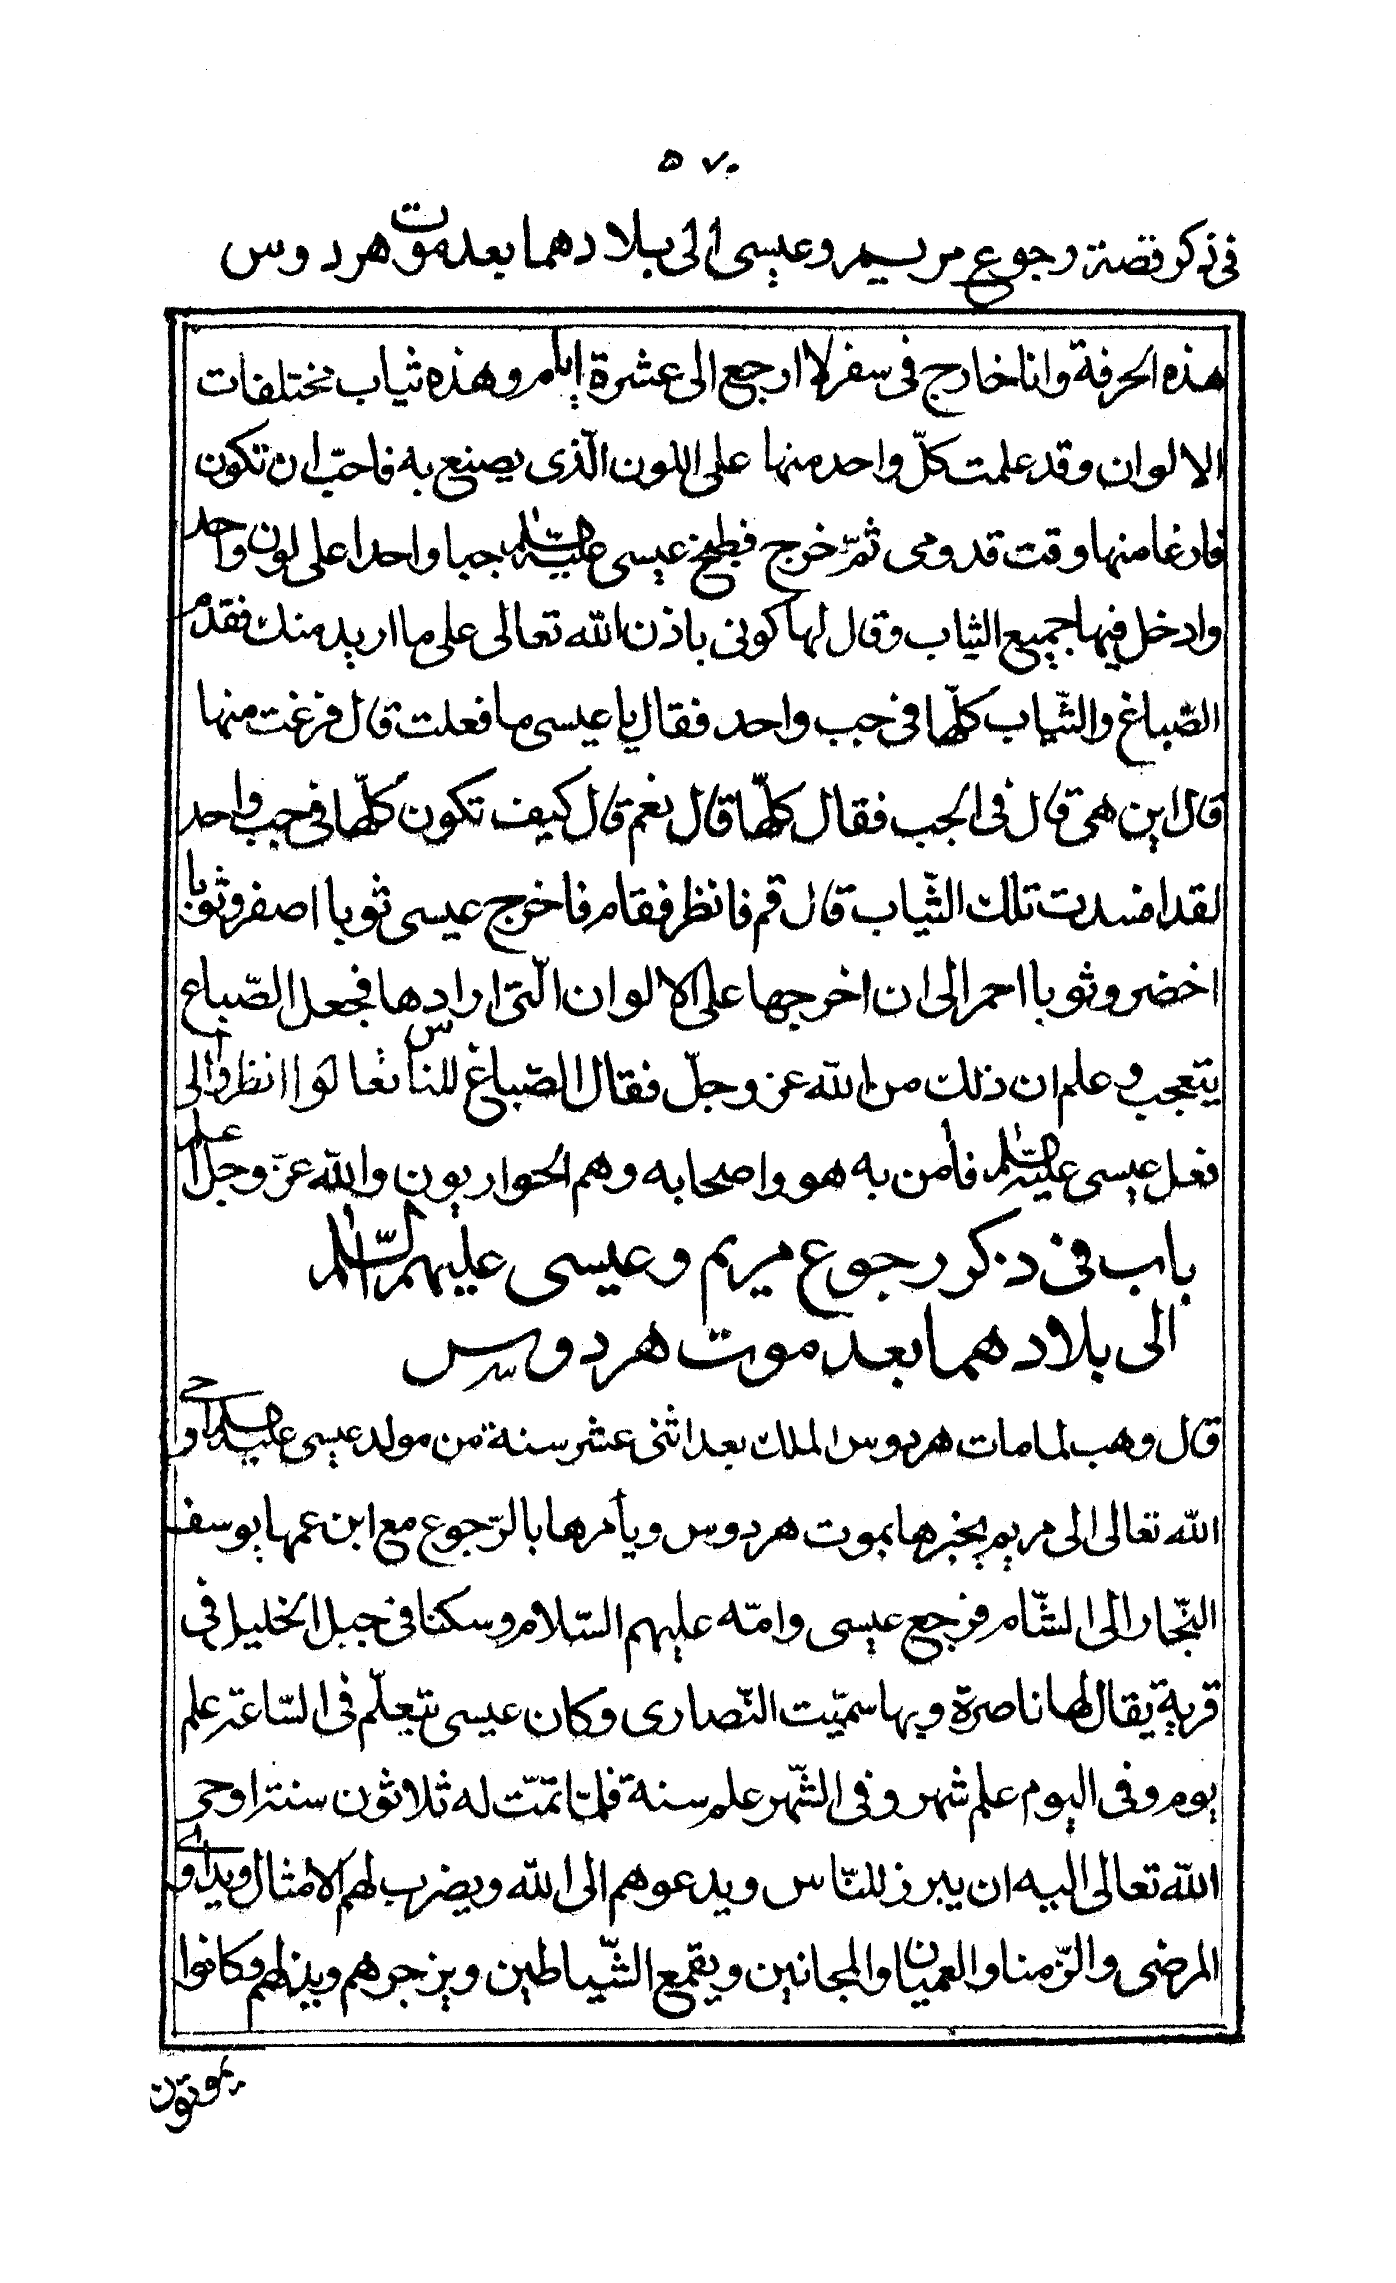 ٥٧٠
فى ذكر قصة رجوع مريم وعيسى الى بلادهما بعد موت هردوس
هذه الحرفة وانا خارج فى سفر لا ارجع الى عشرة ايام وهذه ثياب مختلفات
الالوان وقد علمت كلّ واحد منها على اللون الّذى يصنع به فاحبّ ان تكون
فارغا منها وقت قدومى ثمّ خرج فطبخ عيسى عليه السّلم جبا واحدا على لون واحد
وادخل فيها جميع الثياب وقال لها كونى باذن الله تعالى على ما اريد منك فقدم
الصّباغ والثّياب كلّها فى جب واحد فقال يا عيسى ما فعلت قال فرغت منها
قال اين هى قال فى الجب فقال كلّها قال نعم قال كيف تكون كلّها فى جب واحد
لقد افسدت تلك الثّياب قال قم فانظر فقام فاخرج عيسى ثوبا اصفر وثوبا
اخضر وثوبا احمر الى ان اخرجها على الالوان الّتى ارادها فجعل الصّباغ
يتعجب وعلم ان ذلك من الله عز وجلّ فقال الصّباغ للناس تعالوا انظروا الى
فعل عيسى عليه السّلم فأمن به هو واصحابه وهم الحواريون والله عزّ وجل اعلم
باب فى ذكر رجوع مريم وعيسى عليهم السّلم
الى بلادهما بعد موت هردوس
قال وهب لما مات هردوس الملك بعد اثنى عشر سنة من مولد عيسى عليه السلم اوحى
الله تعالى الى مريم يخبرها بموت هردوس ويأمرها بالرّجوع مع ابن عمها يوسف
النّجار الى الشّام فرجع عيسى وامّه عليهم السّلام وسكنا فى جبل الخليل فى
قرية يقال لها ناصرة وبها سميّت النّصارى وكان عيسى يتعلّم فى السّاعة علم
يوم وفى اليوم علم شهر وفى الشّهر علم سنة فلمّا تمّت له ثلاثون سنة اوحى
الله تعالى اليه ان يبرز للنّاس ويدعوهم الى الله ويضرب لهم الامثال ويداوى
المرضى والزّمنا والعميان والمجانين ويقمع الشّياطين ويزجرهم ويذلهم وكانوا
يموتون